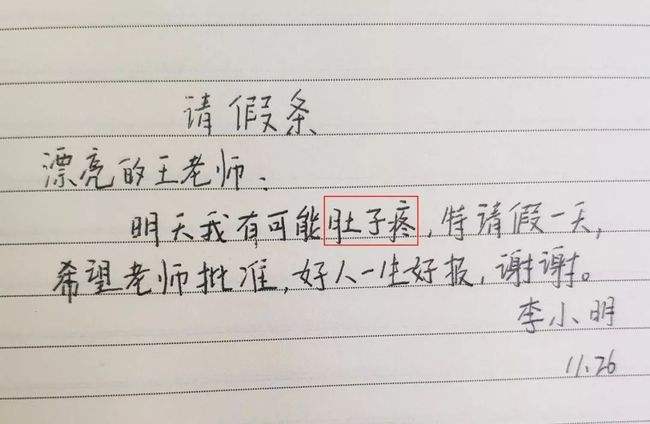 请假条
漂亮的王老师:
明天我有可能肚子疼,特请假一天,
希望老师批准,好人一生好报,谢谢。
李小明
11.26